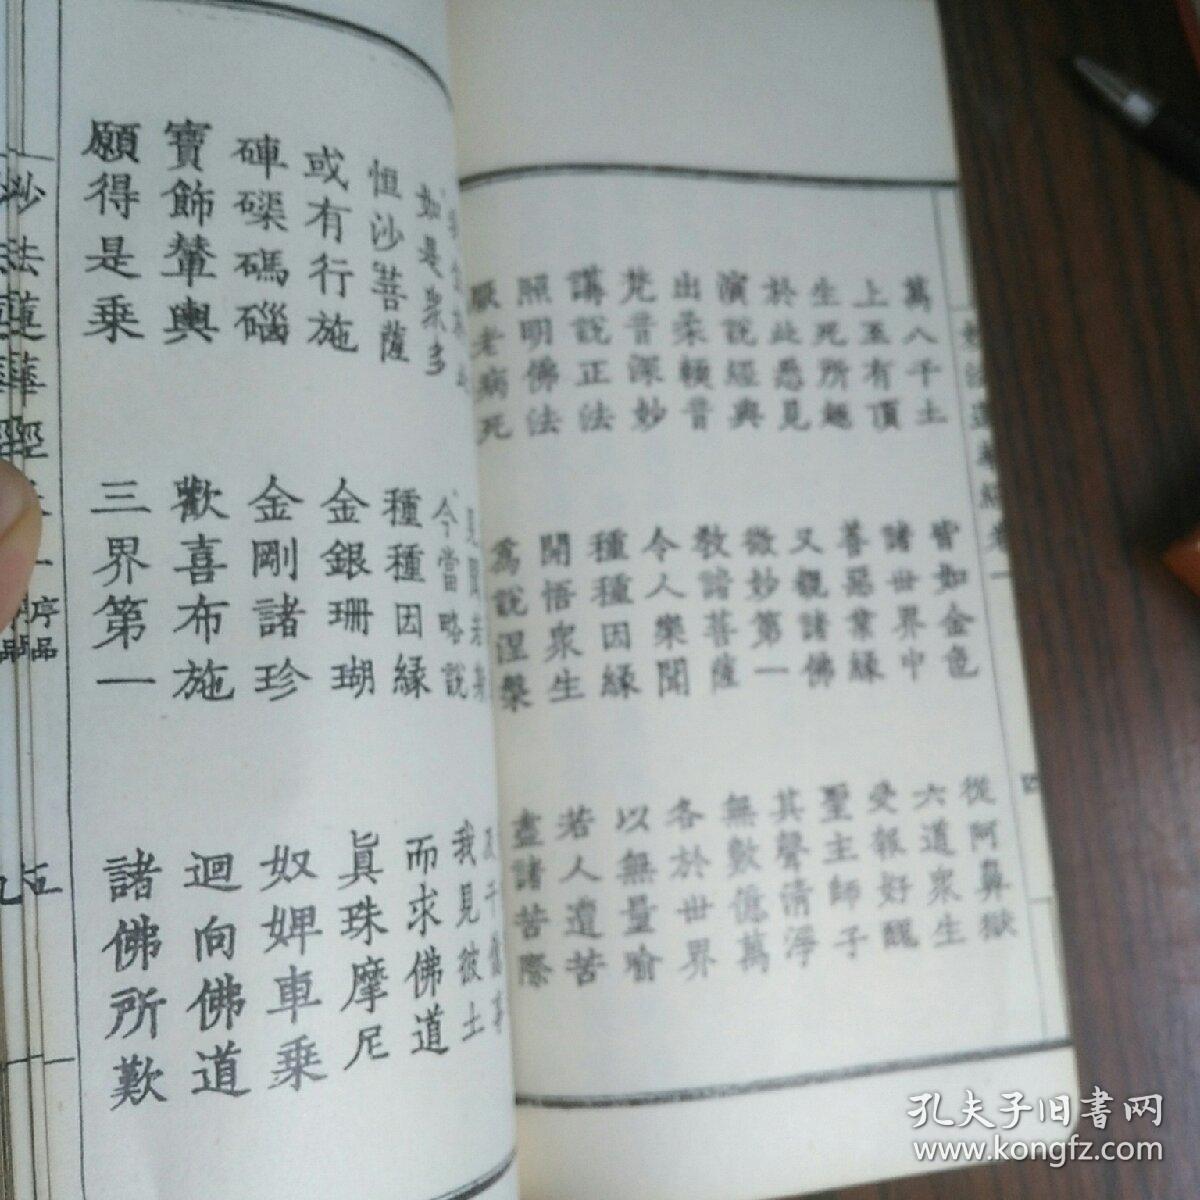 妙法蓮華經卷一 四
萬八千土 皆如金色 從阿鼻獄
上至有頂 諸世界中 六道眾生
生死所趣 善惡業緣 受報好醜
於此悉見 又覩諸佛 聖主師子
演說經典 微妙第一 其聲清淨
出柔輭音 教諸菩薩 無數億萬
梵音深妙 令人樂聞 各於世界
講說正法 種種因緣 以無量喻
照明佛法 開悟眾生 若人遭苦
厭老病死 爲說涅槃 盡諸苦際
見聞若斯 及千億事
如是眾多 今當略說 我見彼土
恒沙菩薩 種種因緣 而求佛道
或有行施 金銀珊瑚 眞珠摩尼
硨磲碼碯 金剛諸珍 奴婢車乘
寶飾輦輿 歡喜布施 迴向佛道
願得是乘 三界第一 諸佛所歎
妙法蓮華經卷一 序品 五
孔夫子旧書网
www.kongfz.com